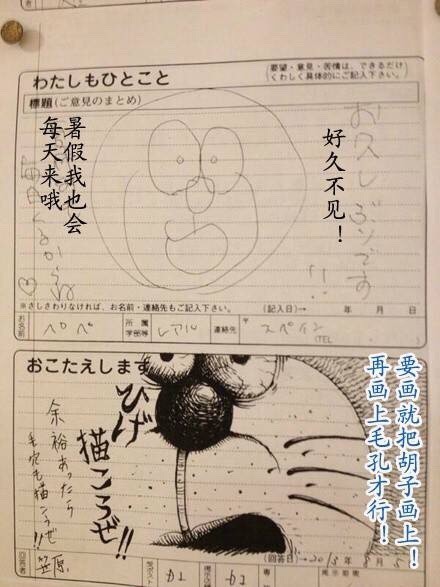 わたしもひとこと
要望・意見・苦情は、できるだけ
くわしく具体的にご記入下さい。
標題(ご意見のまとめ)
お久しぶりです!!
好久不见!
暑假我也会
每天来哦
※さしさわりなければ、お名前・連絡先もご記入下さい。
(記入日)→ 年 月 日
お名前 ペペ 所属学部等 レアル 連絡先 スペイン
(TEL
おこたえします
ひげ
描こうぜ!!
余裕あったら
毛穴も描こうぜ!!
笠原
要画就把胡子画上!
再画上毛孔才行!
(回答日)→2013年8月5日
回答者